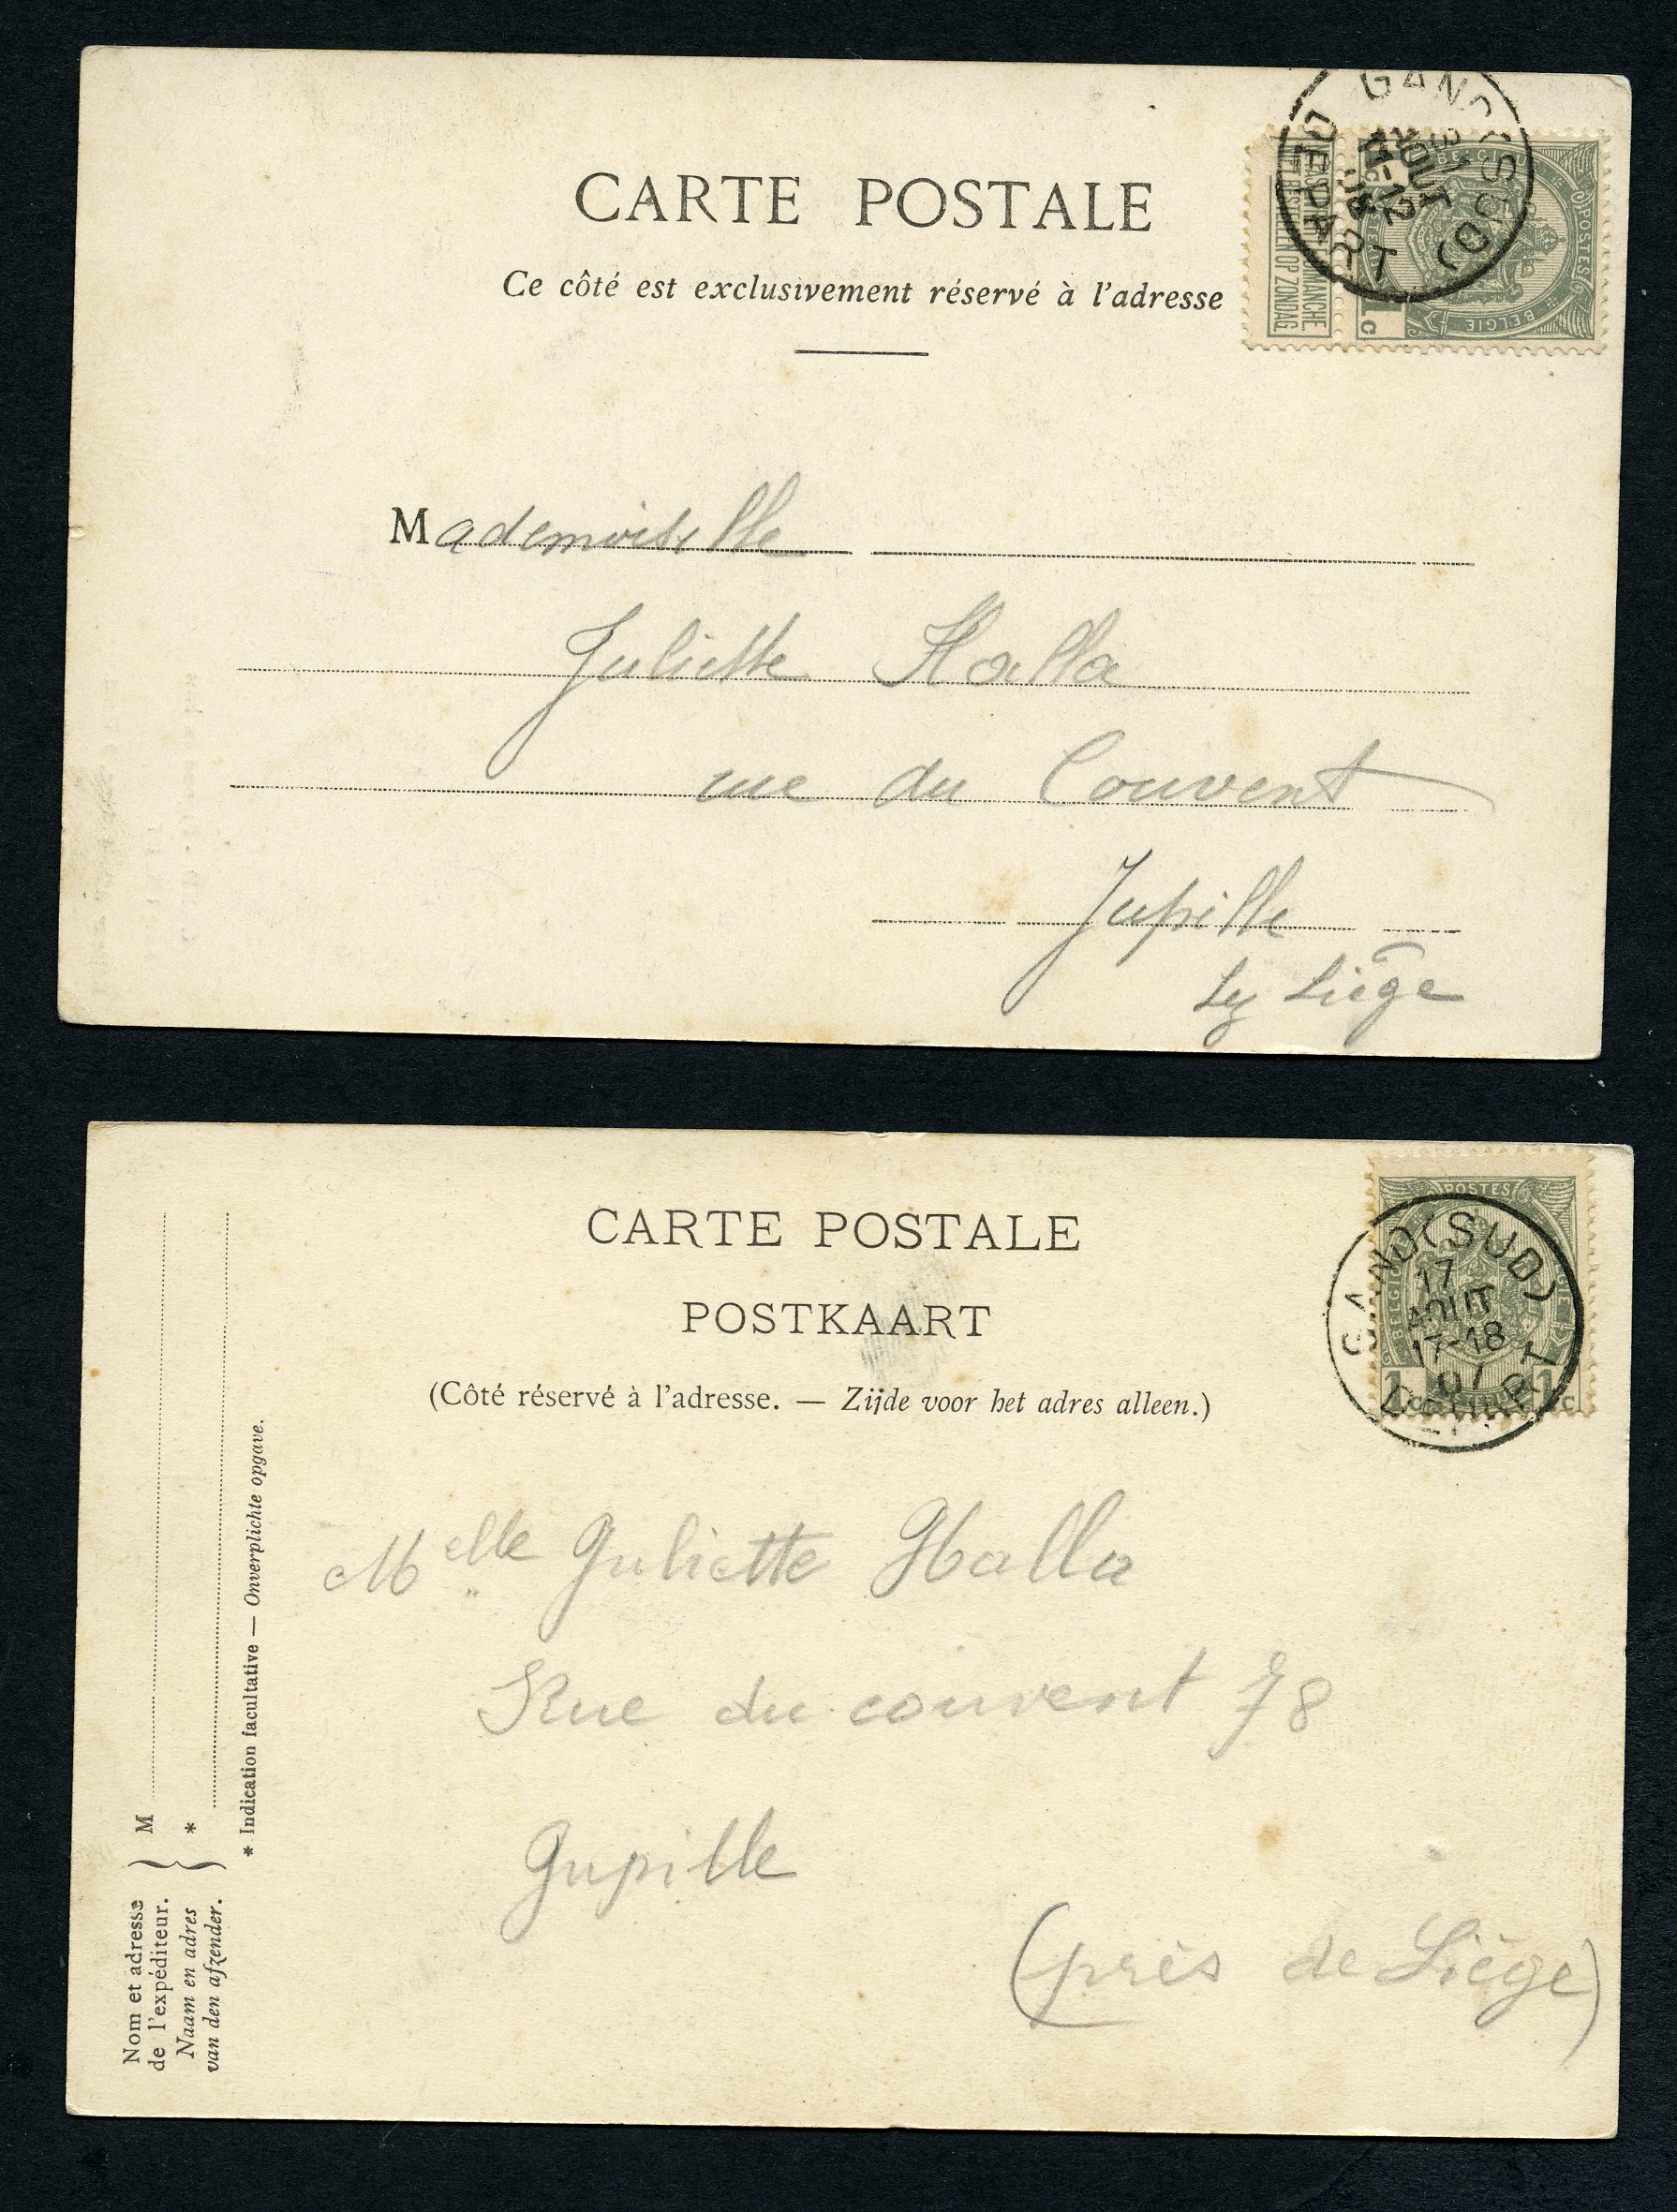 CARTE POSTALE
Ce côté est exclusivement réservé à l'adresse
GAND (SUD)
AOUT
11-12
08
DEPART
BELGIE
POSTES
1c
MANCHE
NIET BESTELLEN OP ZONDAG
Mademoiselle
Juliette Halla
rue du Couvent
Jupille
Lez Liège
CARTE POSTALE
POSTKAART
(Côté réservé à l'adresse. — Zijde voor het adres alleen.)
POSTES
BELGIQUE
1c 1c
GAND (SUD)
17
AOUT
17-18
07
DEPART
Melle Juliette Halla
Rue du couvent 78
Jupille
(près de Liège)
Nom et adresse
de l'expéditeur.
Naam en adres
van den afzender.
M
*
* Indication facultative — Onverplichte opgave.